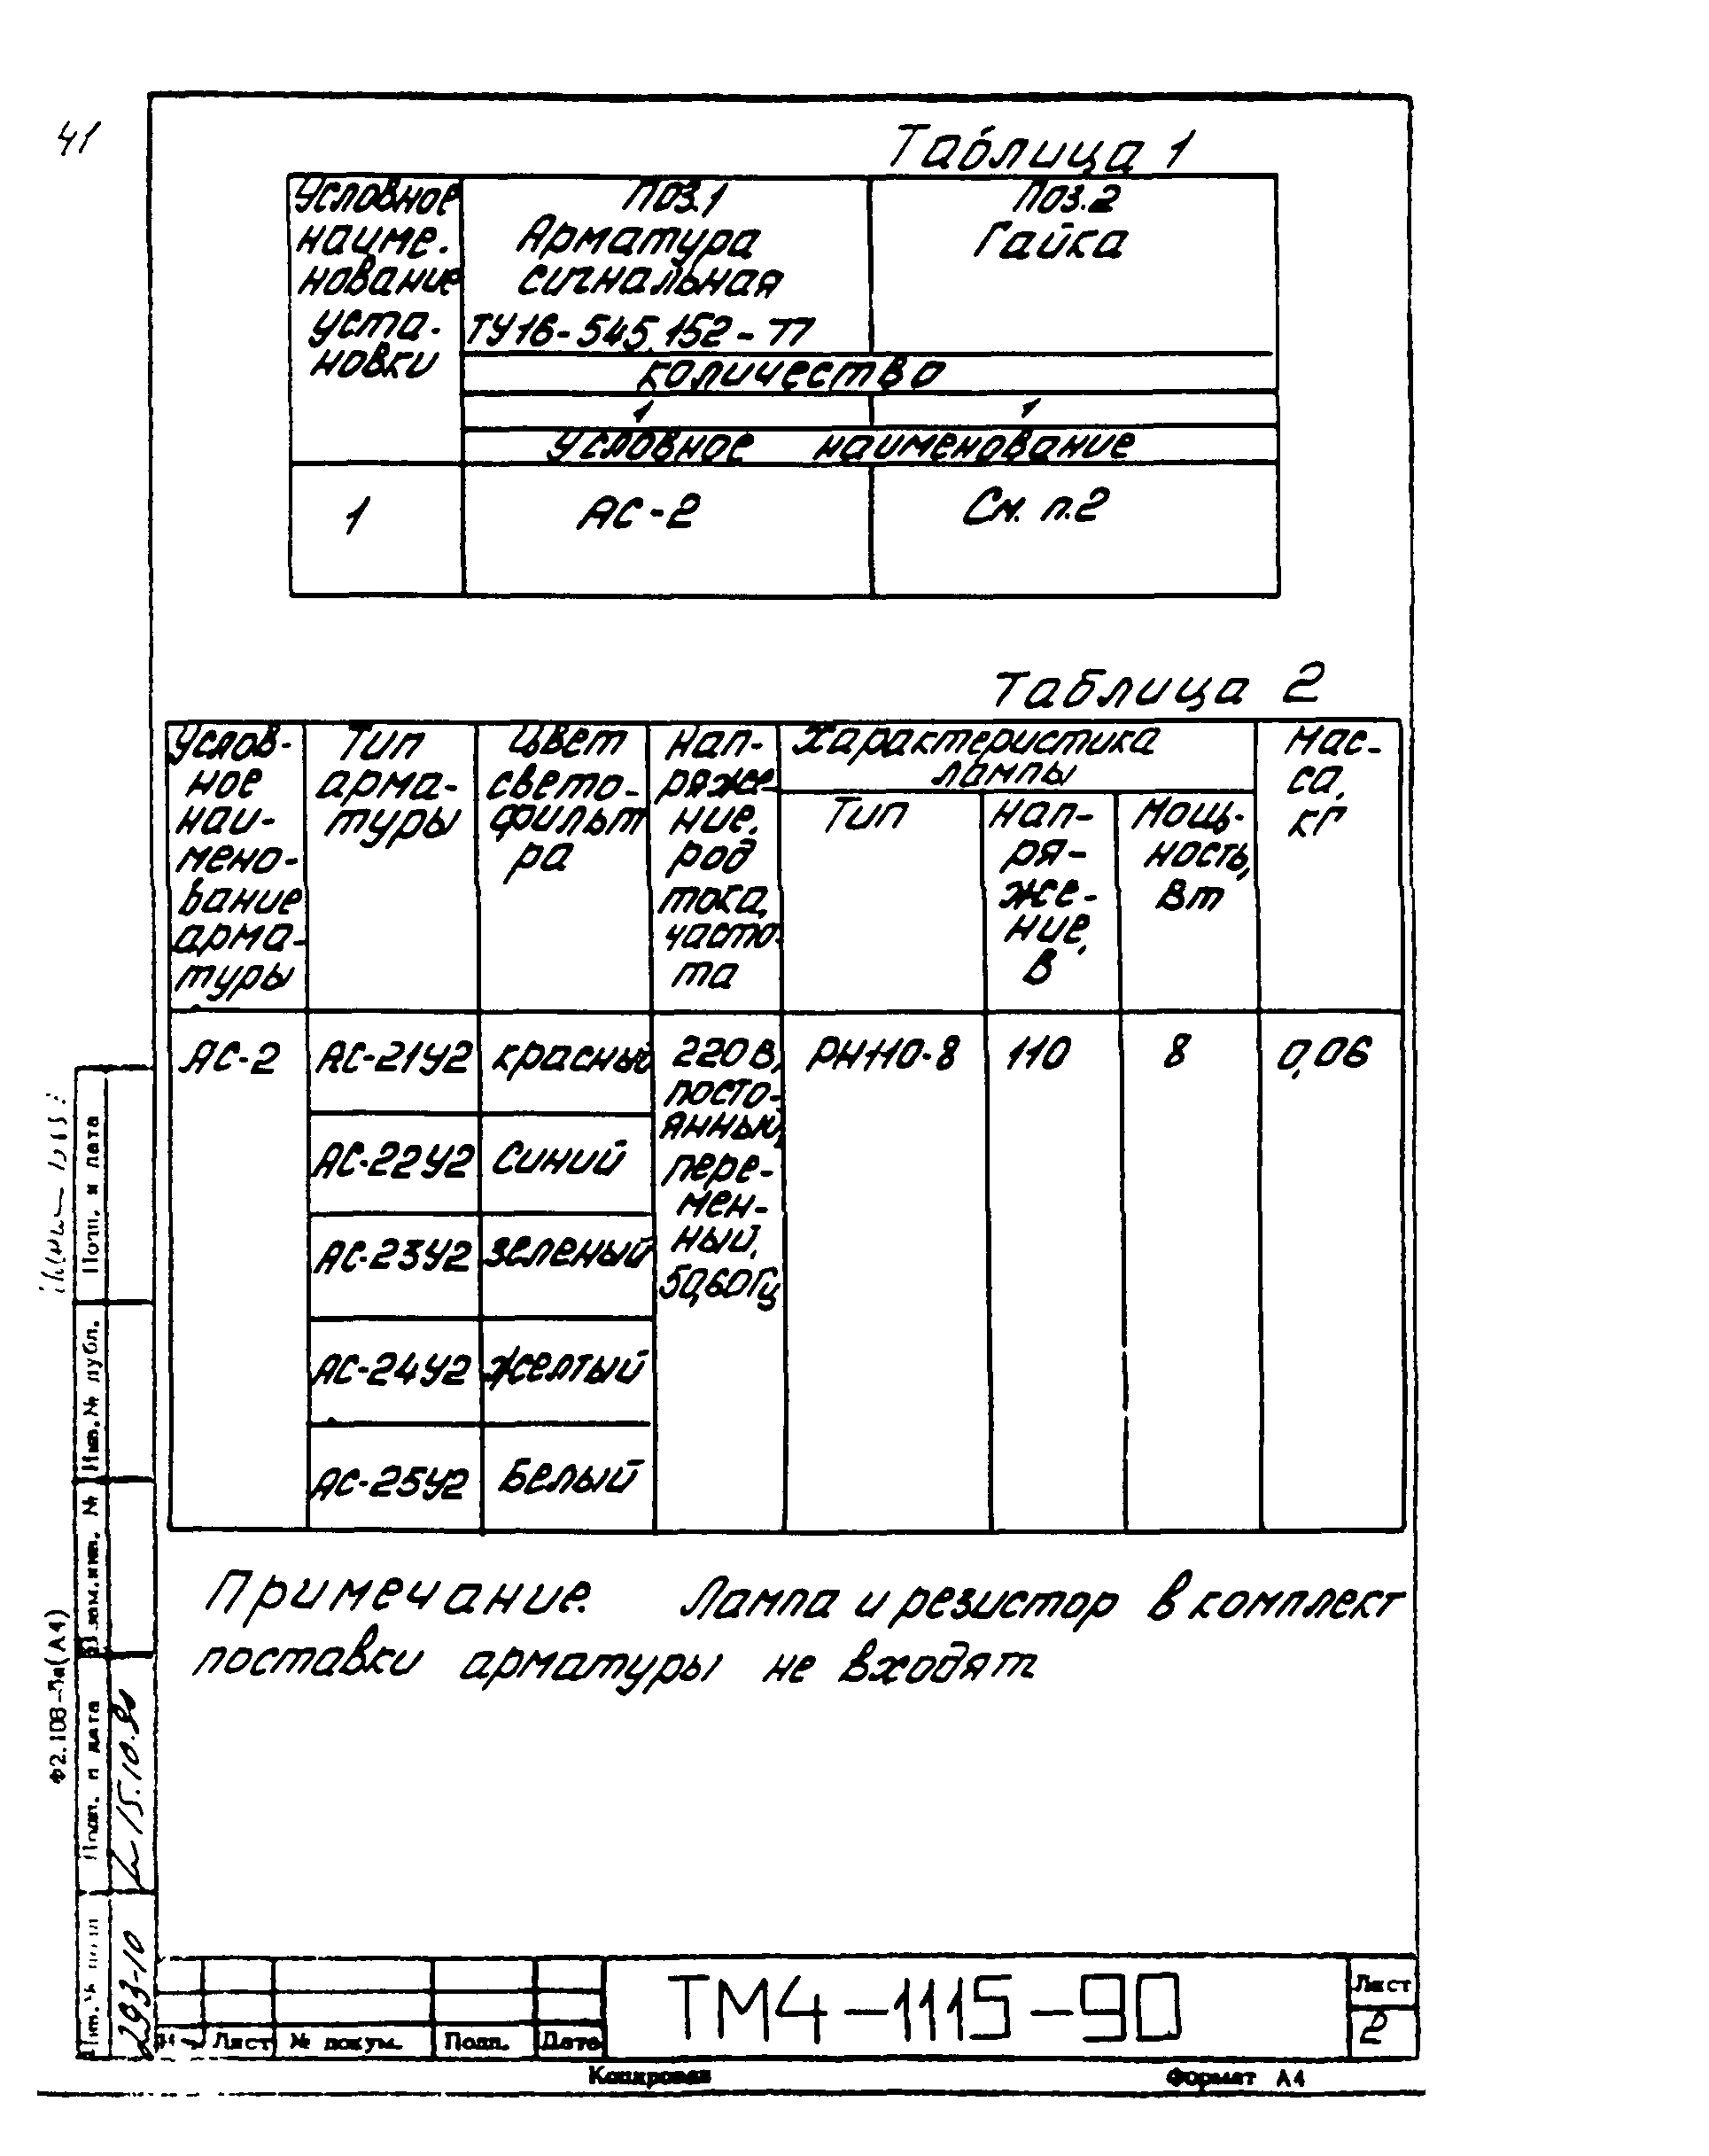 41
Таблица 1
Условное
наиме.
нование
уста-
новки
Поз.1
Арматура
сигнальная
ТУ16-545.152-77
Поз.2
Гайка
количество
1 1
Условное наименование
1 АС-2 См. п.2
Таблица 2
Услов-
ное
наи-
мено-
вание
арма-
туры
Тип
арма-
туры
Цвет
свето-
фильт
ра
Нап-
ряже-
ние,
род
тока,
часто-
та
Характеристика
лампы
Тип
Нап-
ря-
же-
ние,
В
Мощ-
ность,
Вт
Мас-
са,
кг
АС-2 АС-21У2 красный
220 В,
посто-
янный,
пере-
мен-
ный,
50,60Гц
РН-110-8 110 8 0,06
АС-22У2 Синий
АС-23У2 зеленый
АС-24У2 желтый
АС-25У2 Белый
Примечание. Лампа и резистор в комплект
поставки арматуры не входят
Подп. и дата
Инв.№ дубл.
Взам.инв. №
Подп. и дата
15.10.90
293-10
Ф2.108-5а(А4)
Лист № докум. Подп. Дата
ТМ4-1115-90
Лист
2
Копировал Формат А4